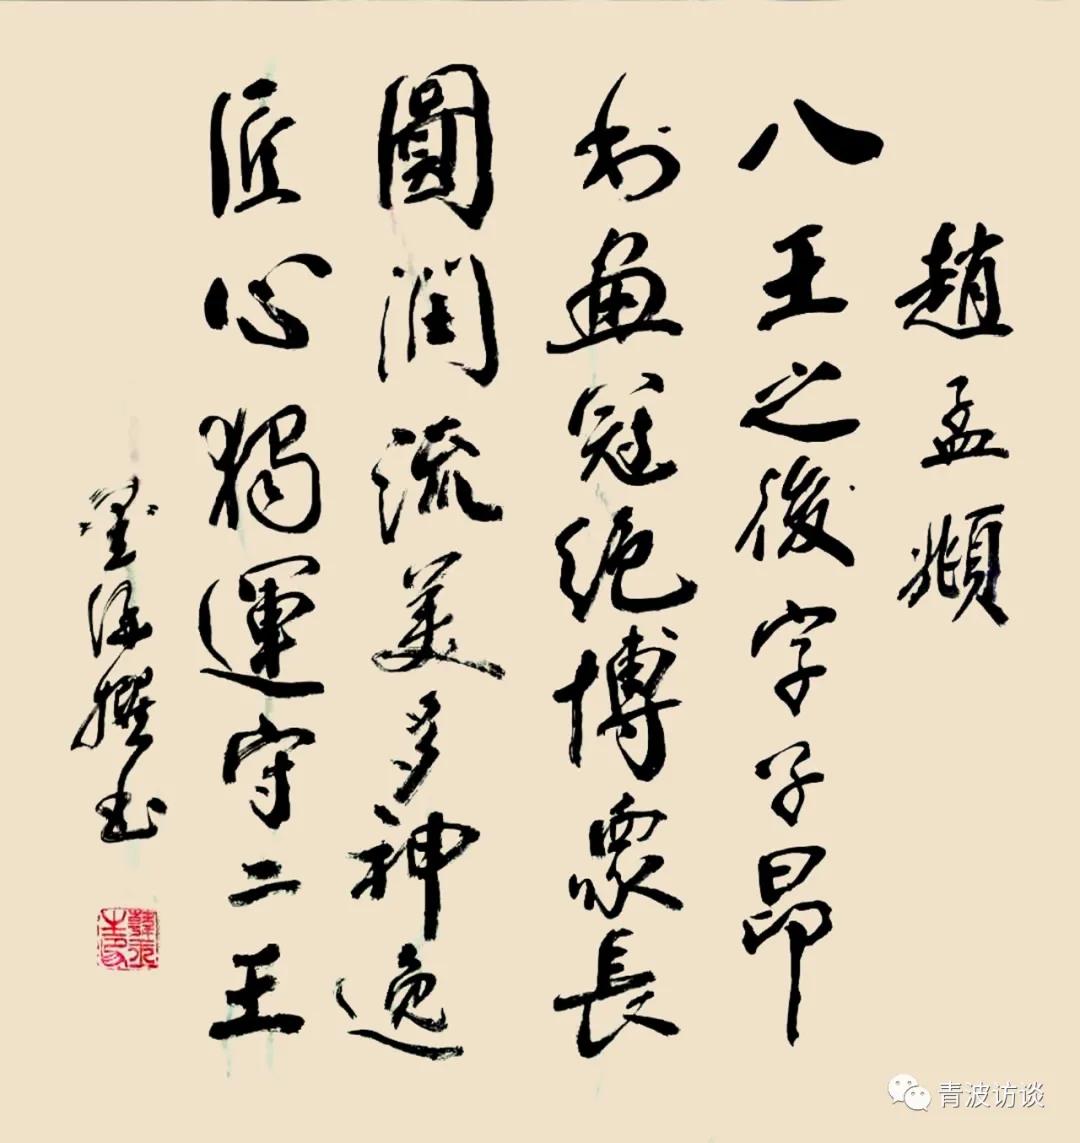 趙孟頫
八王之後字子昂
書畫冠絕博衆長
圓潤流美多神逸
匠心獨運守二王
墨海撰書
青波访谈